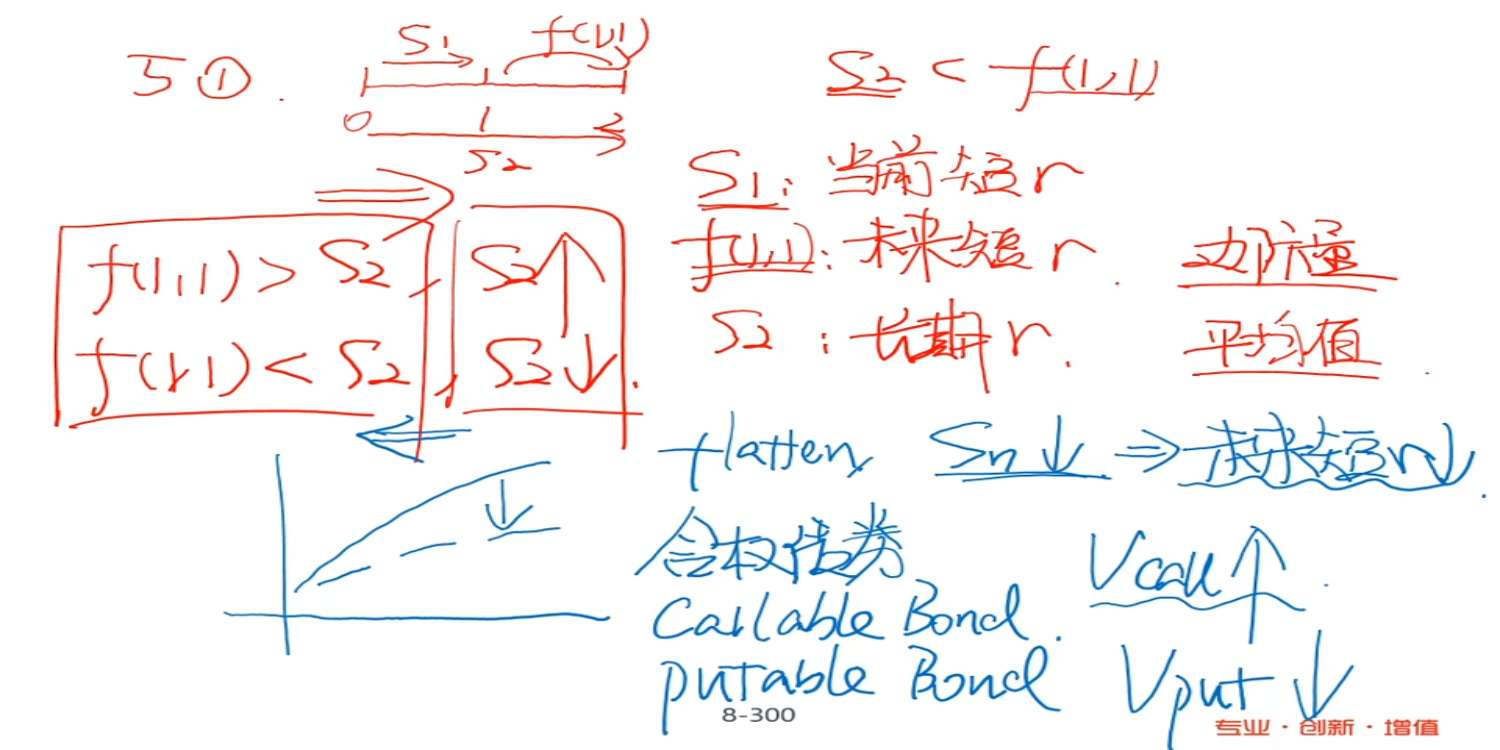 5①.
S1 f(1,1)
0 1 2
S2
S2 < f(1,1)
S1: 当前短r
f(1,1): 未来短r. 边际量
S2: 长期r. 平均值
f(1,1) > S2, S2↑
f(1,1) < S2, S2↓.
flatten, Sn↓ ⇒ 未来短r↓.
含权债券
Callable Bond. Vcall↑.
putable Bond Vput↓
8-300
专业·创新·增值